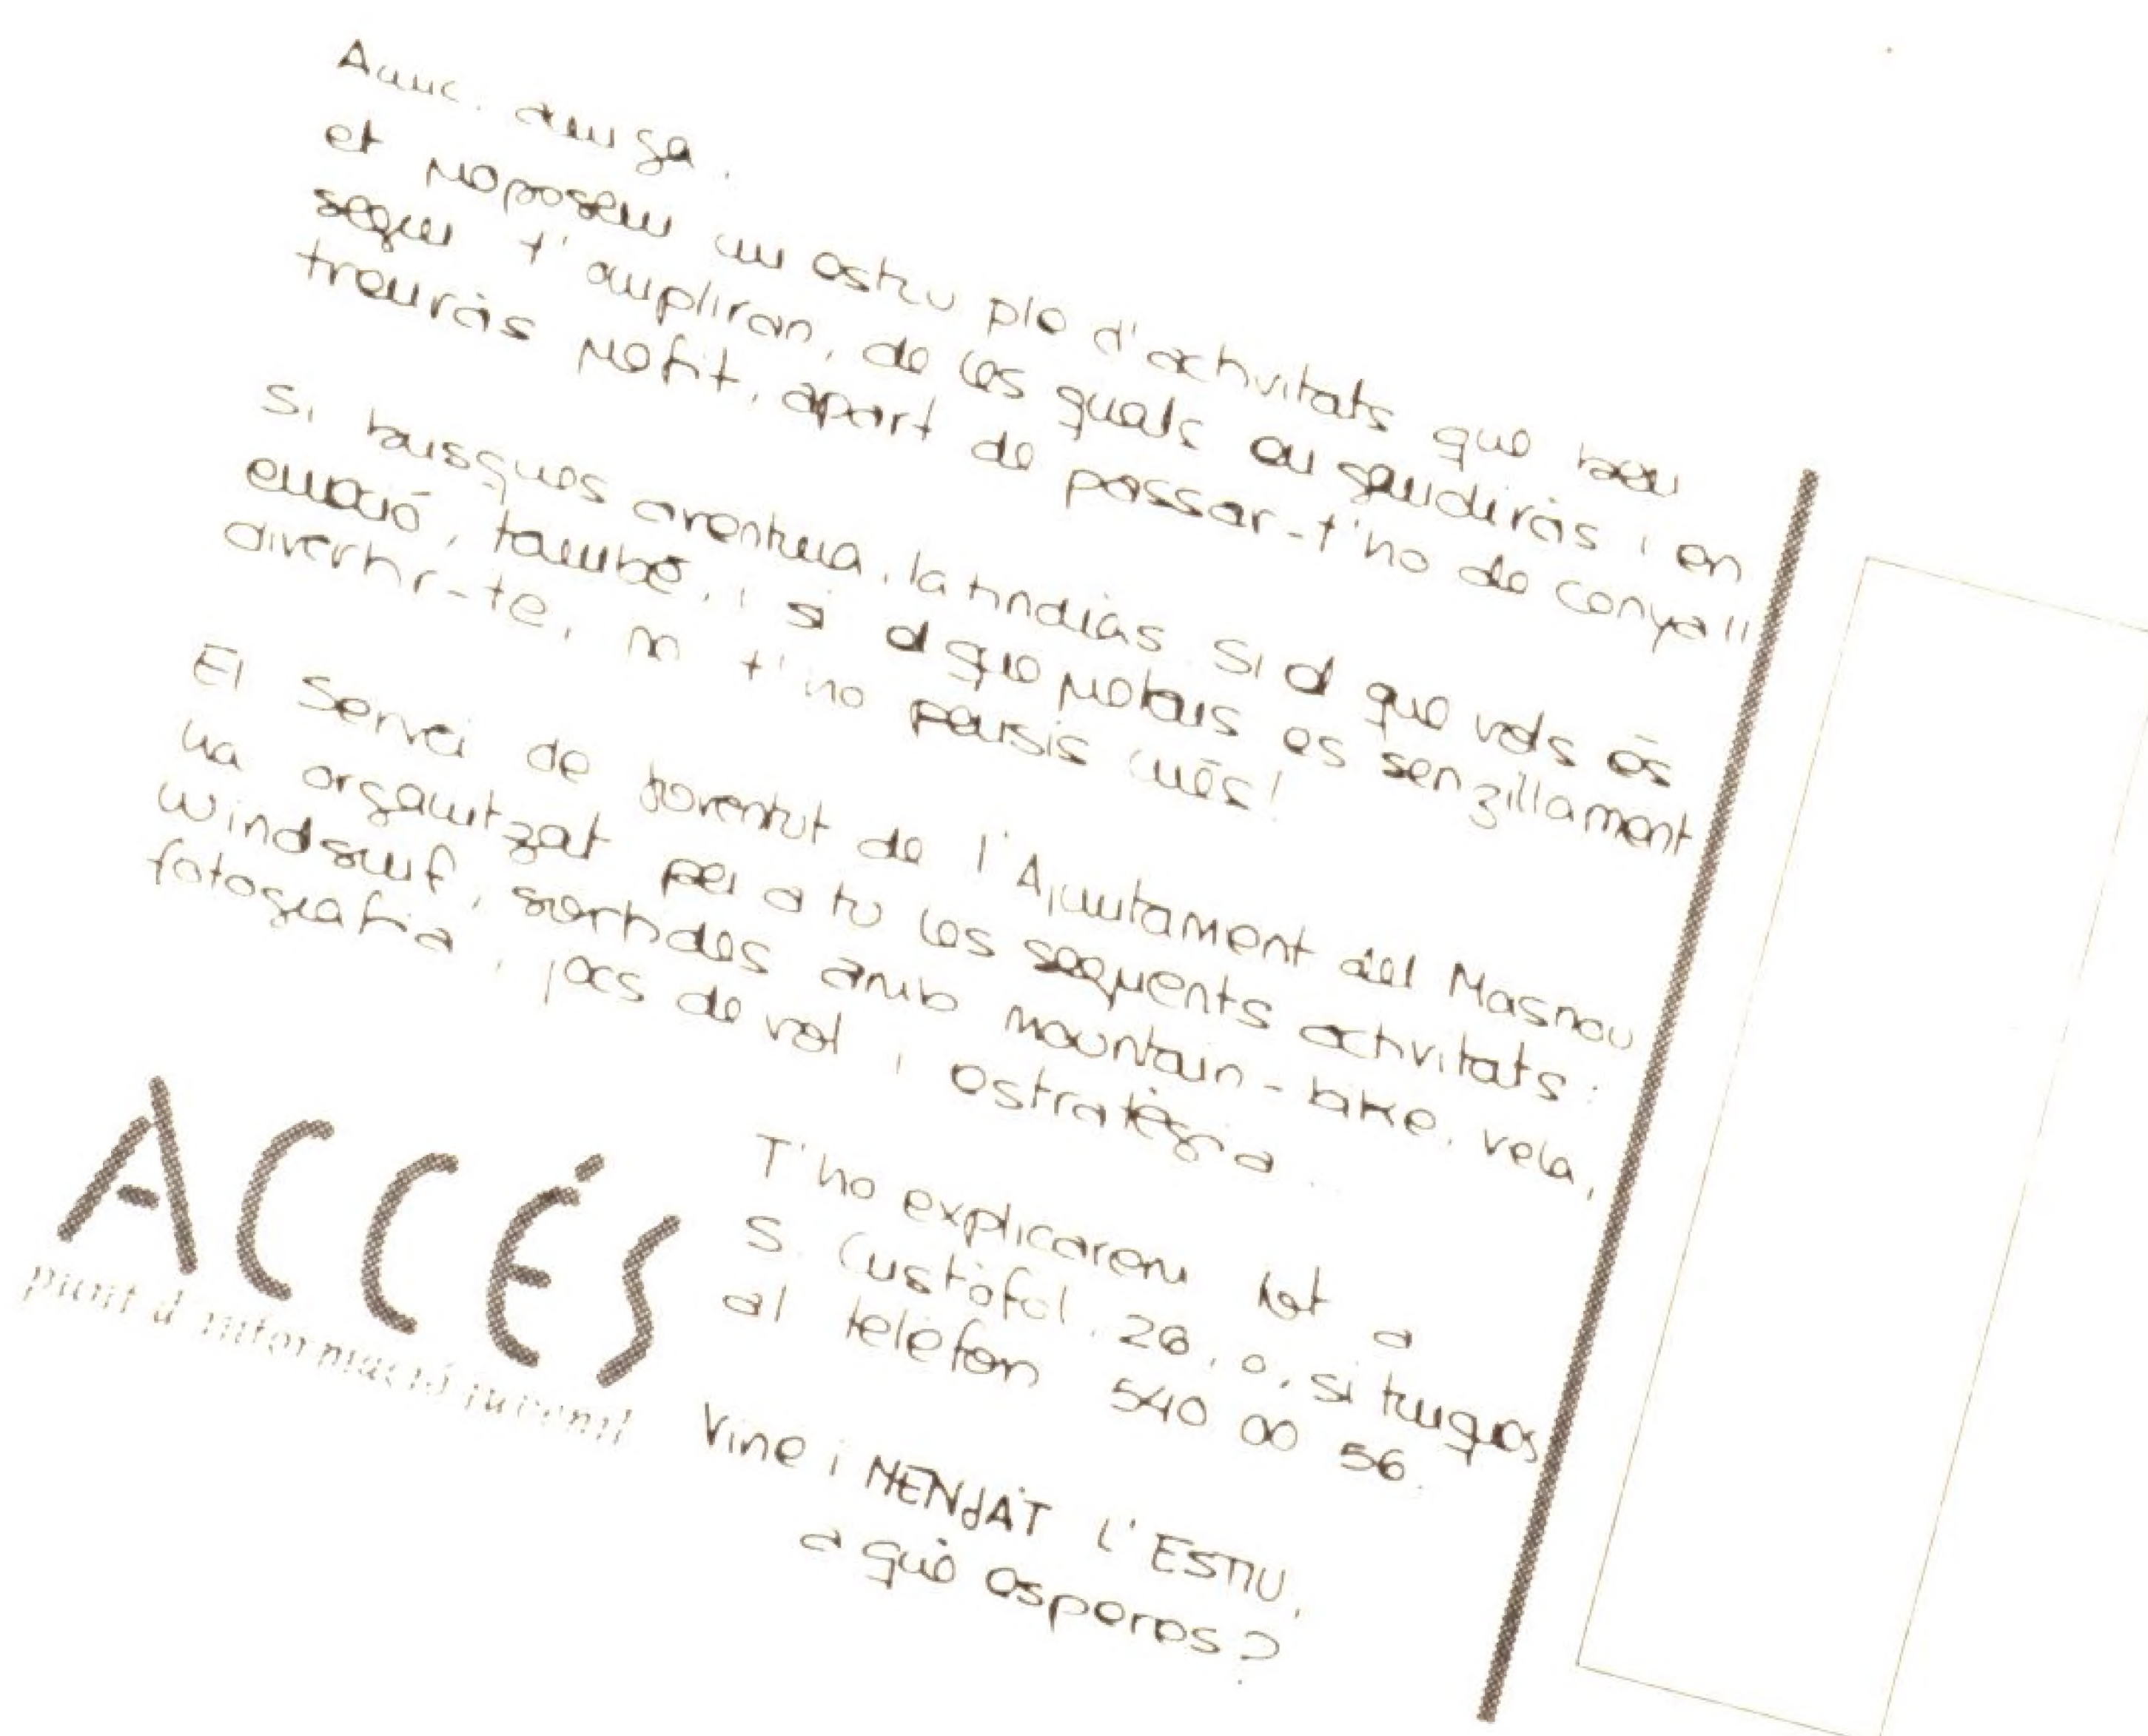 Amic, amiga,
et proposem un estiu ple d'activitats que ben
segur t'ompliran, de les quals en gaudiràs i en
treuràs profit, apart de passar-t'ho de conya!!
Si busques aventura, la tindràs. Si el que vols és
emoció, també, i si el que prefereixes és senzillament
divertir-te, no t'ho pensis més!
El Servei de Joventut de l'Ajuntament del Masnou
ha organitzat per a tu les següents activitats:
windsurf, sortides amb mountain-bike, vela,
fotografia, jocs de rol i estratègia...
T'ho explicarem tot a
S. Cristòfol, 28, o, si truques
al telèfon 540 00 56.
Vine i MENJA'T L'ESTIU,
a què esperes?
ACCÉS
punt d'informació juvenil